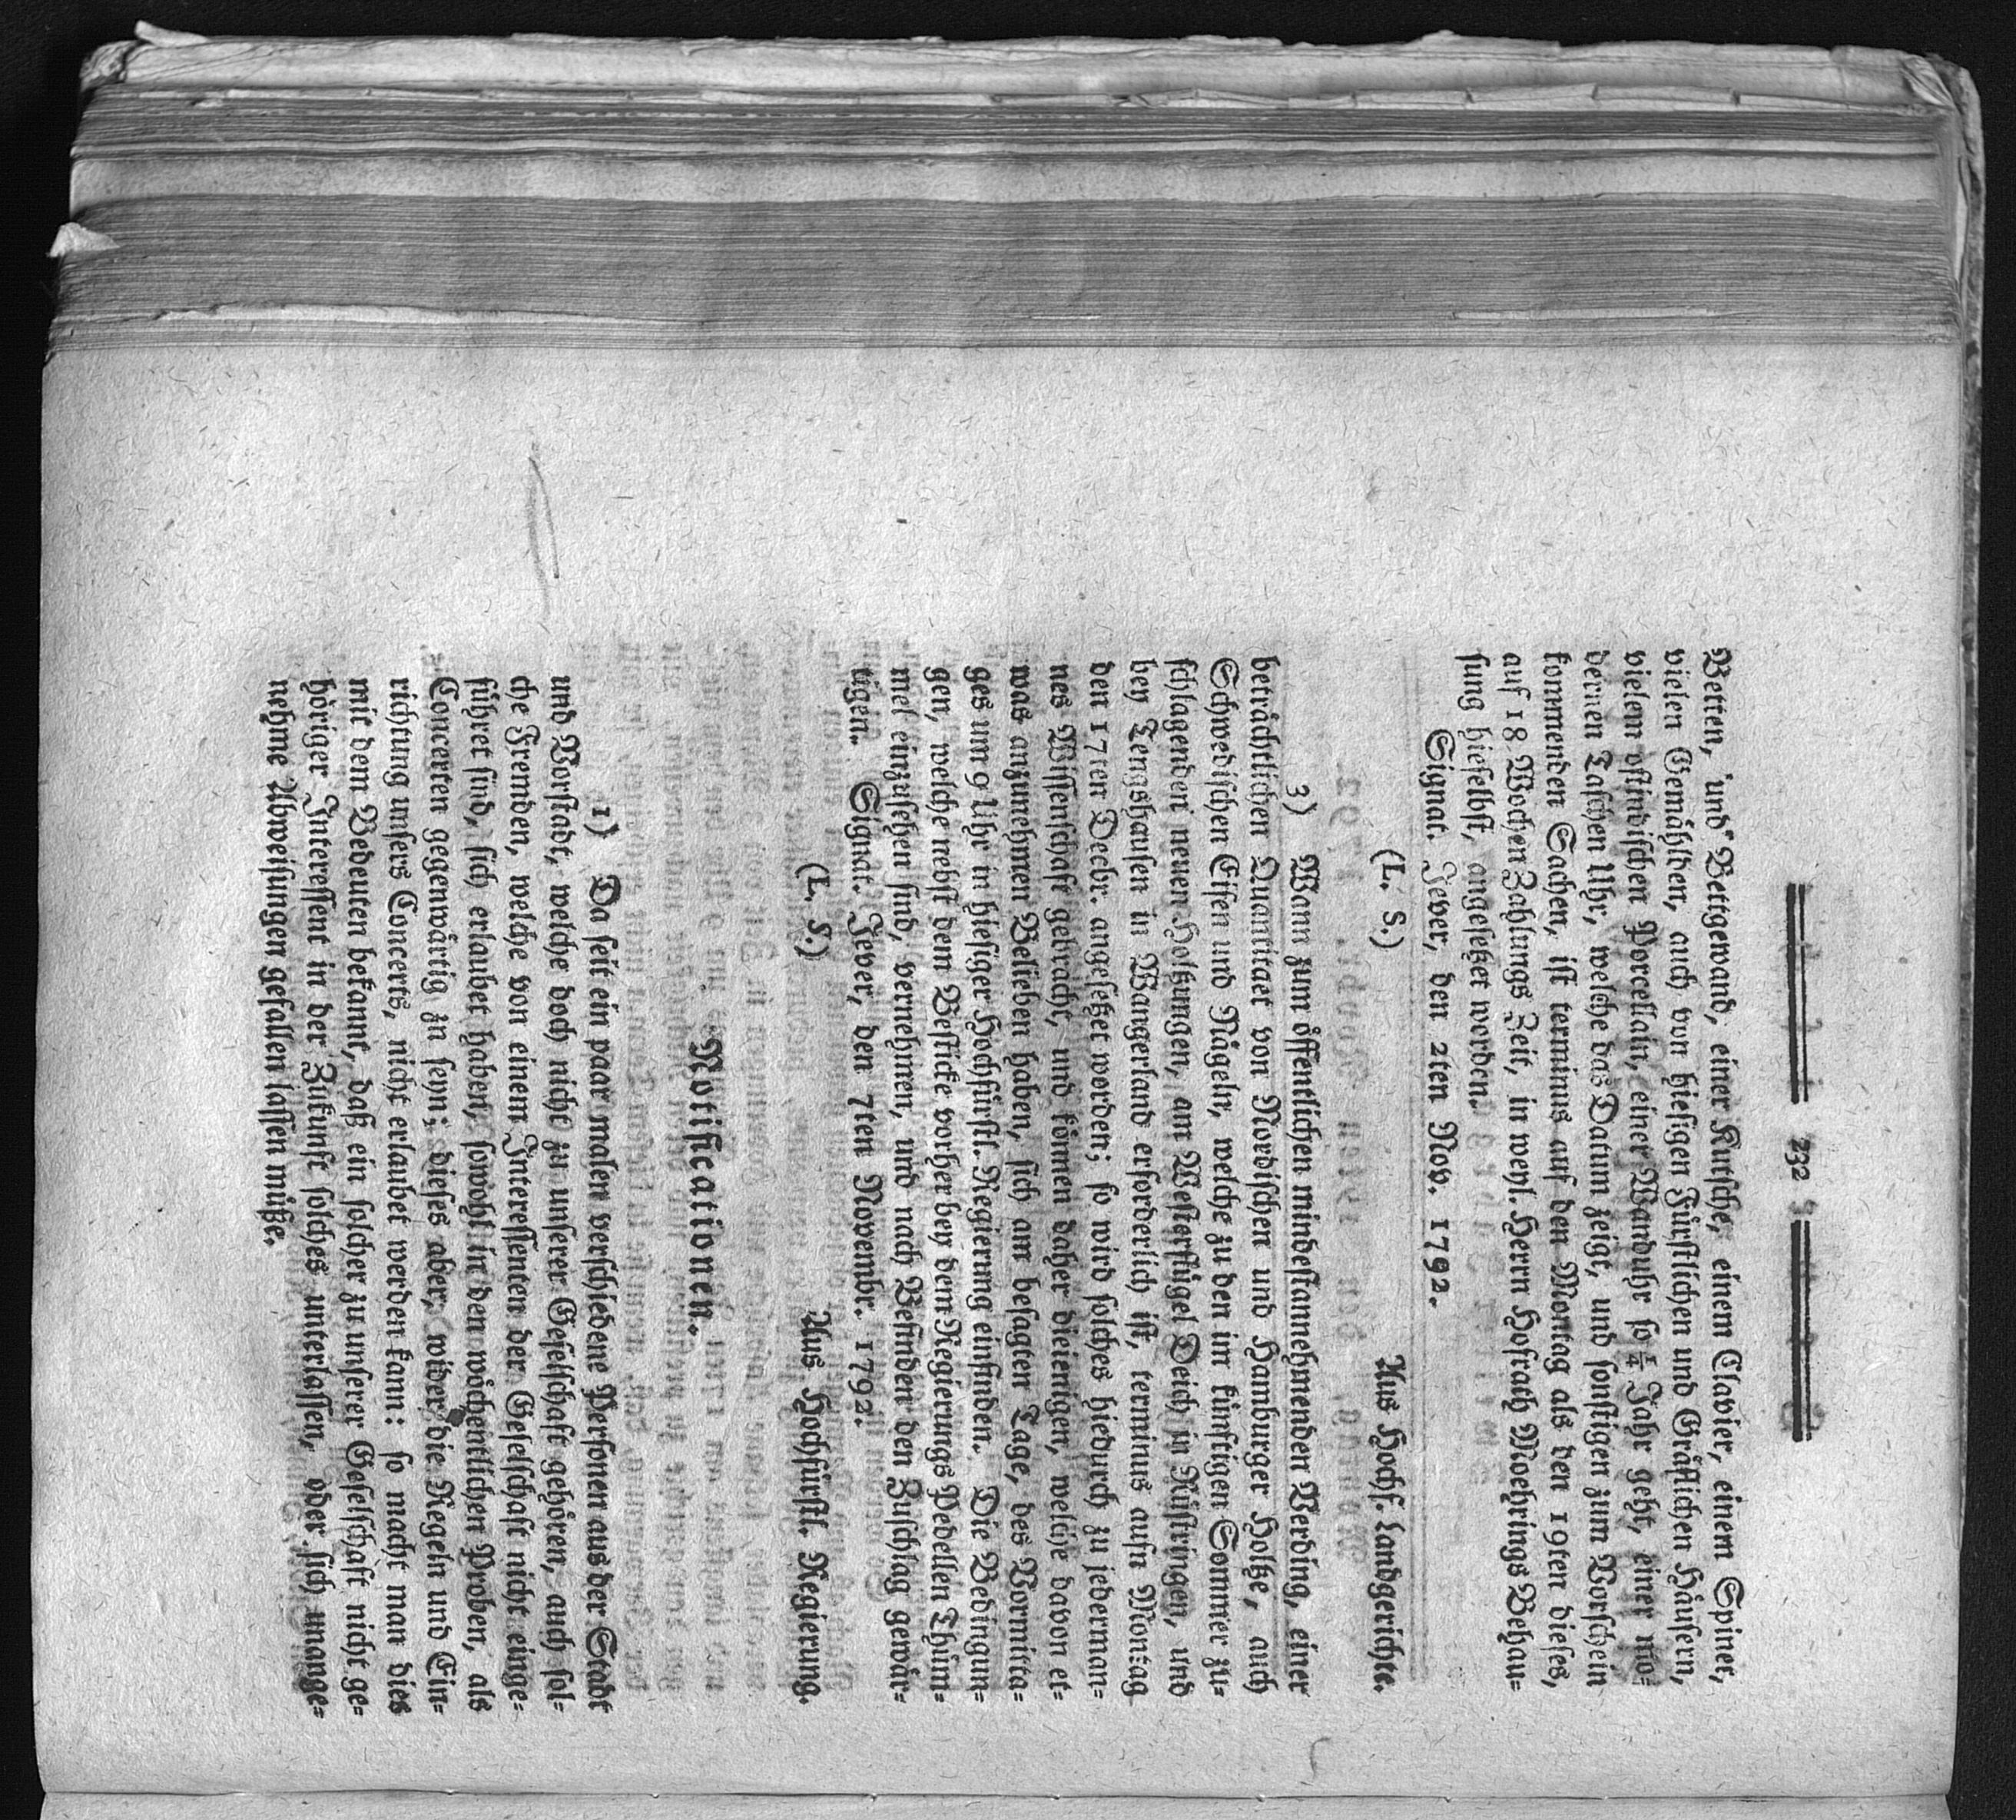 232
Betten, und Bettgewand, einer Kutsche, einem Clavier, einem Spinet,
vielen Gemählden, auch von hiesigen Fürstlichen und Gräflichen Häusern,
vielem ostindischen Porcellain, einer Wanduhr so ¼ Jahr geht, einer mo=
dernen Taschen Uhr, welche das Datum zeigt, und sonstigen zum Vorschein
kommenden Sachen, ist terminus auf den Montag als den 19ten dieses,
auf 18 Wochen Zahlungs Zeit, in weyl. Herrn Hofrath Moehrings Behau=
sung hieselbst, angesetzet worden.
Signat. Jever, den 2ten Nov. 1792.
(L. S.) Aus Hochf. Landgerichte.
3) Wann zum öffentlichen mindestannehmenden Verding, einer
beträchtlichen Quantitaet von Nordischen und Hamburger Holtze, auch
Schwedischen Eisen und Nägeln, welche zu den im künftigen Sommer zu=
schlagenden neuen Holtzungen, am Westerflügel Deich in Rüstringen, und
bey Tengshausen in Wangerland erforderlich ist, terminus aufn Montag
den 17ten Decbr. angesetzet worden; so wird solches hiedurch zu jederman=
nes Wissenschaft gebracht, und können daher dieienigen, welche davon et=
was anzunehmen Belieben haben, sich am besagten Tage, des Vormitta=
ges um 9 Uhr in hiesiger Hochfürstl. Regierung einfinden. Die Bedingun=
gen, welche nebst dem Besticke vorher bey dem Regierungs Pedellen Thüm=
mel einzusehen sind, vernehmen, und nach Befinden den Zuschlag gewär=
tigen. Signat. Jever, den 7ten Novembr. 1792.
(L. S.) Aus Hochfürstl. Regierung.
Notificationen.
1) Da seit ein paar malen verschiedene Personen aus der Stadt
und Vorstadt, welche doch nicht zu unserer Geselschaft gehören, auch sol=
che Fremden, welche von einem Interessenten der Geselschaft nicht einge=
führet sind, sich erlaubet haben, sowohl in den wöchentlichen Proben, als
Concerten gegenwärtig zu seyn; dieses aber, wider die Regeln und Ein=
richtung unsers Concerts, nicht erlaubet werden kann: so macht man dies
mit dem Bedeuten bekannt, daß ein solcher zu unserer Geselschaft nicht ge=
höriger Interessent in der Zukunft solches unterlassen, oder sich unange=
nehme Abweisungen gefallen lassen müße.